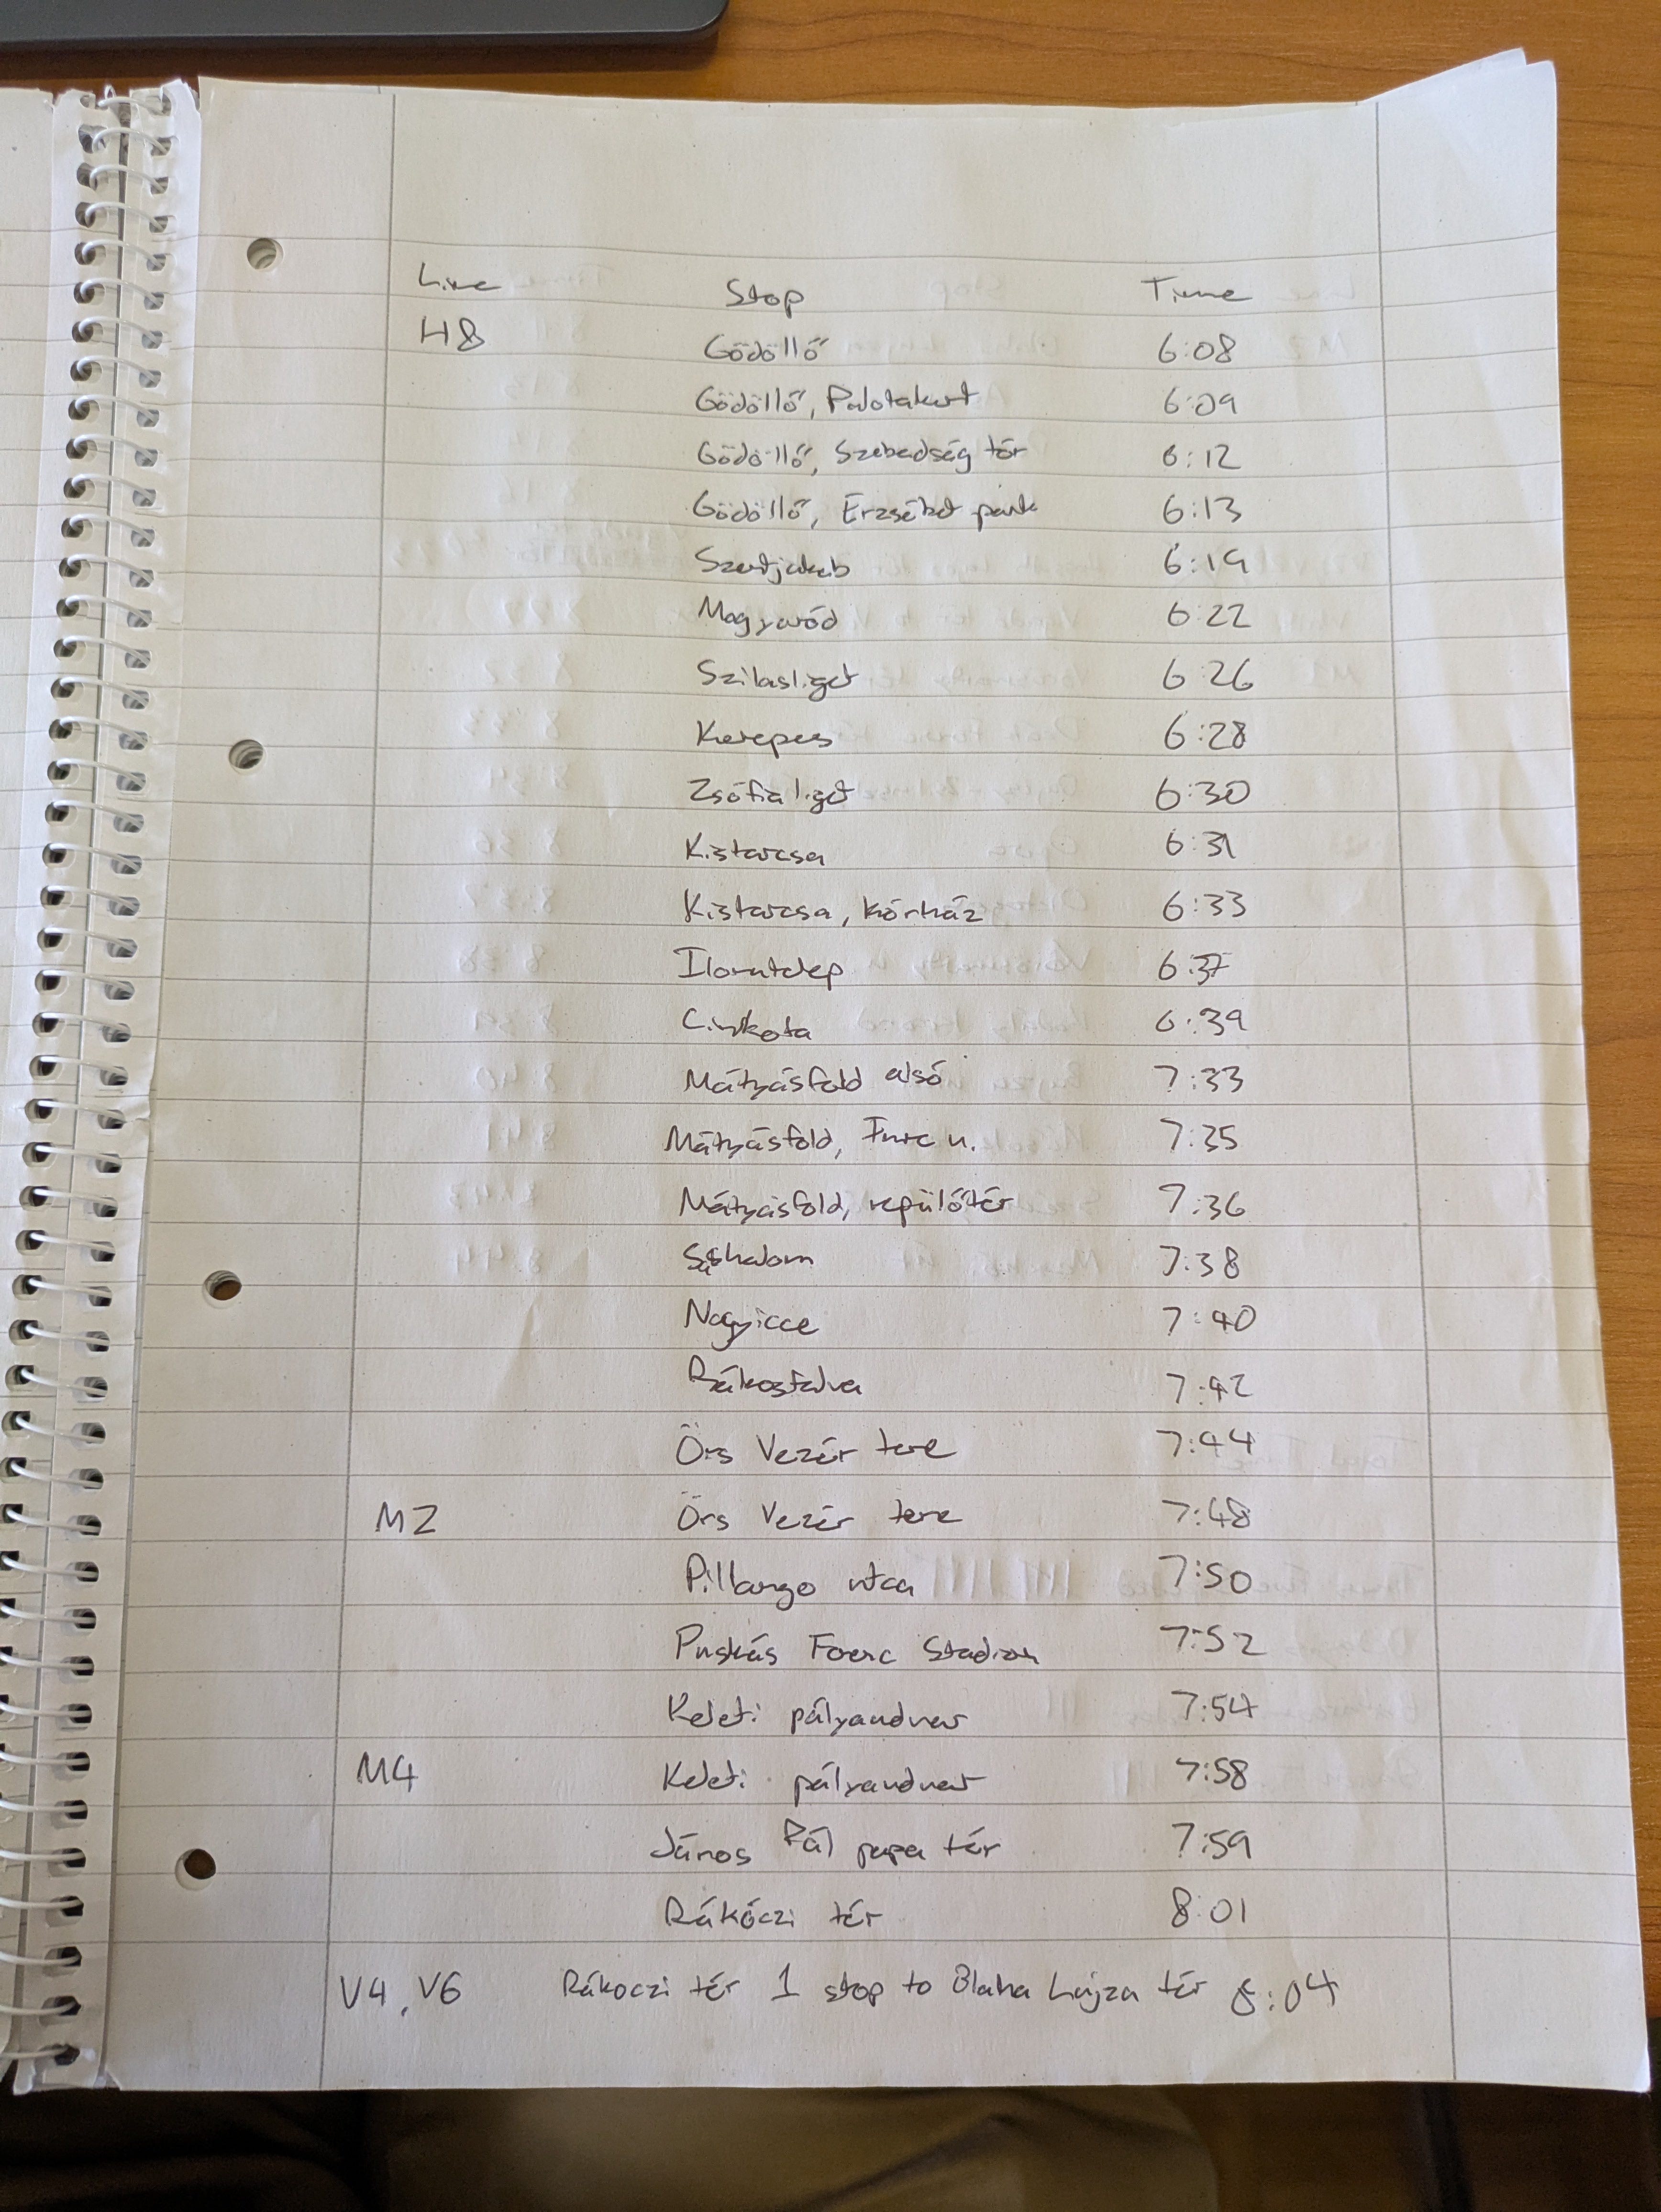 Line Stop Time
H8 Gödöllő 6:08
Gödöllő, Palotakert 6:09
Gödöllő, Szabadság tér 6:12
Gödöllő, Erzsébet park 6:13
Szentjakab 6:19
Mogyoród 6:22
Szilasliget 6:26
Kerepes 6:28
Zsófialiget 6:30
Kistarcsa 6:31
Kistarcsa, Kórház 6:33
Ilonatelep 6:37
Cinkota 6:39
Mátyásfold alsó 7:33
Mátyásfold, Imre u. 7:35
Mátyásfold, repülőtér 7:36
Sashalom 7:38
Nagyicce 7:40
Rákosfalva 7:42
Örs Vezér tere 7:44
M2 Örs Vezér tere 7:48
Pillango utca 7:50
Puskás Ferenc Stadion 7:52
Keleti pályaudvar 7:54
M4 Keleti pályaudvar 7:58
János Pál papa tér 7:59
Rákóczi tér 8:01
V4, V6 Rákoczi tér 1 stop to Blaha Lujza tér 8:04